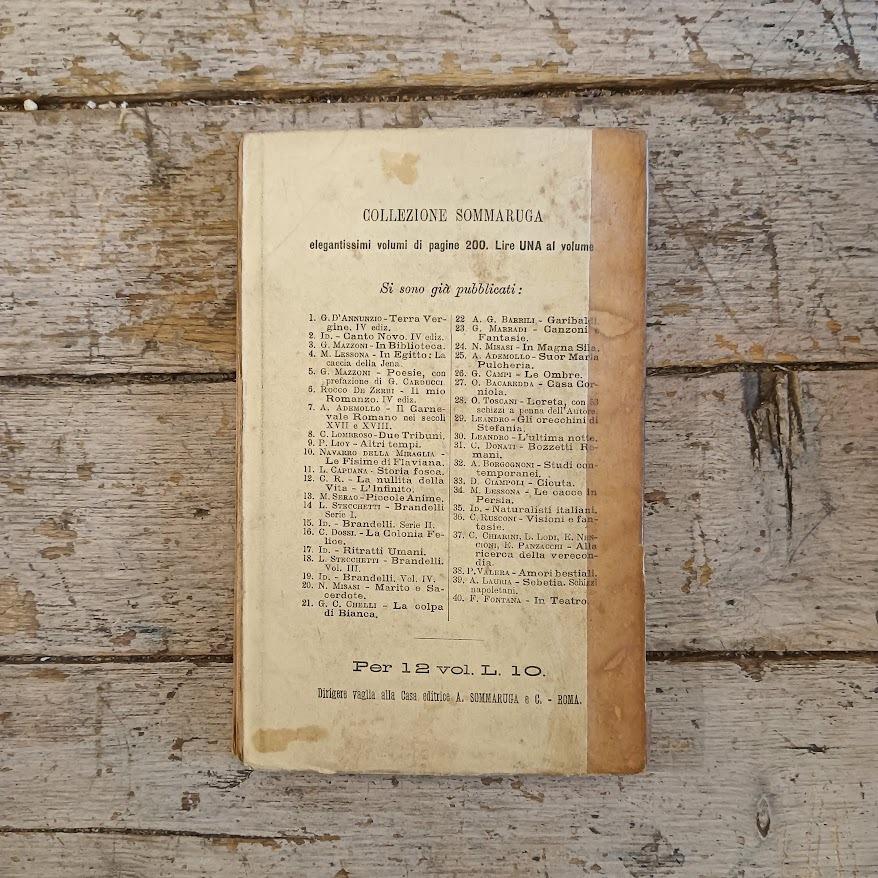 COLLEZIONE SOMMARUGA
elegantissimi volumi di pagine 200. Lire UNA al volume
Si sono già pubblicati:
1. G. D'ANNUNZIO - Terra Ver-
gine. IV ediz.
2. ID. - Canto Novo. IV ediz.
3. G. MAZZONI - In Biblioteca.
4. M. LESSONA - In Egitto: La
caccia della Jena.
5. G. MAZZONI - Poesie, con
prefazione di G. CARDUCCI.
6. ROCCO DE ZERBI - Il mio
Romanzo. IV ediz.
7. A. ADEMOLLO - Il Carne-
vale Romano nei secoli
XVII e XVIII.
8. C. LOMBROSO - Due Tribuni.
9. P. LIOY - Altri tempi.
10. NAVARRO DELLA MIRAGLIA -
Le Fisime di Flaviana.
11. L. CAPUANA - Storia fosca.
12. C. R. - La nullita della
Vita - L'Infinito.
13. M. SERAO - Piccole Anime.
14 L. STECCHETTI - Brandelli
Serie I.
15. ID. - Brandelli. Serie II.
16. C. DOSSI. - La Colonia Fe-
lice.
17. ID. - Ritratti Umani.
18. L. STECCHETTI - Brandelli.
Vol. III.
19. ID. - Brandelli. Vol. IV.
20. N. MISASI - Marito e Sa-
cerdote.
21. G. C. CHELLI - La colpa
di Bianca.
22 A. G. BARRILI - Garibaldi.
23. G. MARRADI - Canzoni e
Fantasie.
24. N. MISASI - In Magna Sila.
25. A. ADEMOLLO - Suor Maria
Pulcheria.
26. G. CAMPI - Le Ombre.
27. O. BACAREDDA - Casa Cor-
niola.
28. O. TOSCANI - Loreta, con 53
schizzi a penna dell'Autore.
29. LEANDRO - Gli orecchini di
Stefania.
30. LEANDRO - L'ultima notte.
31. C. DONATI - Bozzetti Ro-
mani.
32. A. BORGOGNONI - Studi con-
temporanei.
33. D. CIAMPOLI - Cicuta.
34. M. LESSONA - Le cacce in
Persia.
35. ID. - Naturalisti italiani.
36. C. RUSCONI - Visioni e fan-
tasie.
37. C. CHIARINI, L. LODI, E. NEN-
CIONI, E. PANZACCHI - Alla
ricerca della verecon-
dia.
38. P. VALERA - Amori bestiali.
39. A. LAURIA - Sebetia. Schizzi
napoletani.
40. F. FONTANA - In Teatro.
Per 12 vol. L. 10.
Dirigere vaglia alla Casa editrice A. SOMMARUGA e C. - ROMA.